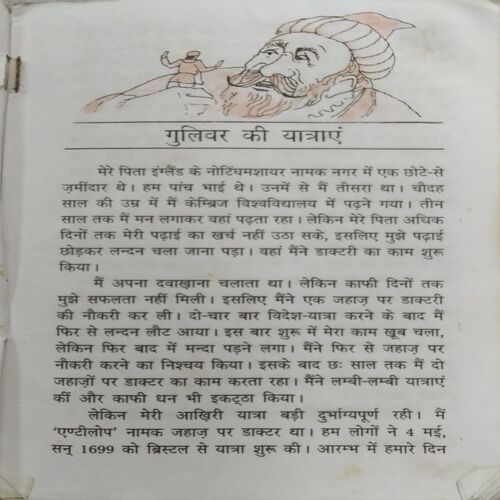 गुलिवर की यात्राएं
मेरे पिता इंग्लैंड के नोटिंघमशायर नामक नगर में एक छोटे-से
ज़मींदार थे। हम पांच भाई थे। उनमें से मैं तीसरा था। चौदह
साल की उम्र में मैं केम्ब्रिज विश्वविद्यालय में पढ़ने गया। तीन
साल तक मैं मन लगाकर वहां पढ़ता रहा। लेकिन मेरे पिता अधिक
दिनों तक मेरी पढ़ाई का खर्च नहीं उठा सके, इसलिए मुझे पढ़ाई
छोड़कर लन्दन चला जाना पड़ा। वहां मैंने डाक्टरी का काम शुरू
किया।
मैं अपना दवाख़ाना चलाता था। लेकिन काफी दिनों तक
मुझे सफलता नहीं मिली। इसलिए मैंने एक जहाज़ पर डाक्टरी
की नौकरी कर ली। दो-चार बार विदेश-यात्रा करने के बाद मैं
फिर से लन्दन लौट आया। इस बार शुरू में मेरा काम खूब चला,
लेकिन फिर बाद में मन्दा पड़ने लगा। मैंने फिर से जहाज़ पर
नौकरी करने का निश्चय किया। इसके बाद छः साल तक मैं दो
जहाज़ों पर डाक्टर का काम करता रहा। मैंने लम्बी-लम्बी यात्राएं
कीं और काफी धन भी इकट्ठा किया।
लेकिन मेरी आख़िरी यात्रा बड़ी दुर्भाग्यपूर्ण रही। मैं
‘एण्टीलोप’ नामक जहाज़ पर डाक्टर था। हम लोगों ने 4 मई,
सन् 1699 को ब्रिस्टल से यात्रा शुरू की। आरम्भ में हमारे दिन